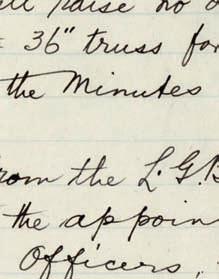 raise no
36" truss for
the Minutes
from the L.G.B
the appoin
Officers